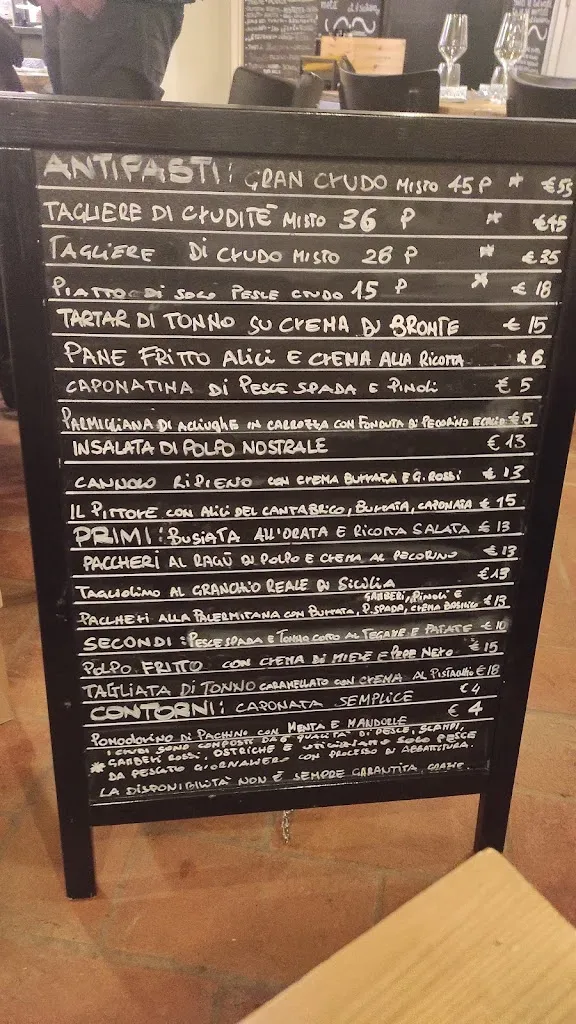 ANTIPASTI: GRAN CRUDO MISTO 45 P * €55
TAGLIERE DI CRUDITÈ MISTO 36 P * €45
TAGLIERE DI CRUDO MISTO 28 P * €35
PIATTO DI SOLO PESCE CRUDO 15 P * € 18
TARTAR DI TONNO SU CREMA DI BRONTE € 15
PANE FRITTO ALICI E CREMA ALLA RICOTTA € 6
CAPONATINA DI PESCE SPADA E PINOLI € 5
PARMIGIANA DI ACCIUGHE IN CARROZZA CON FONDUTA DI PECORINO €5
INSALATA DI POLPO NOSTRALE € 13
CANNOLO RIPIENO CON CREMA BURRATA E G. ROSSI € 13
IL PITTORE CON ALICI DEL CANTABRICO, BURRATA, CAPONATA € 15
PRIMI: BUSIATA ALL'ORATA E RICOTTA SALATA € 13
PACCHERI AL RAGÙ DI POLPO E CREMA AL PECORINO €13
TAGLIOLINO AL GRANCHIO REALE DI SICILIA €13
GAMBERI, PINOLI E
PACCHERI ALLA PALERMITANA CON BURRATA, P. SPADA, CREMA BASILICO €13
SECONDI: PESCE SPADA E TONNO COTTO AL TEGAME E PATATE € 10
POLPO FRITTO CON CREMA DI MIELE E PEPE NERO € 15
TAGLIATA DI TONNO CARAMELLATO CON CREMA AL PISTACCHIO € 18
CONTORNI: CAPONATA SEMPLICE € 4
POMODORINO DI PACHINO CON MENTA E MANDORLE € 4
I CRUDI SONO COMPOSTI DA 6 QUALITÀ DI PESCE, SCAMPI,
* GAMBERI ROSSI, OSTRICHE E UTILIZZIAMO SOLO PESCE
DA PESCATO GIORNALIERO CON PROCESSO DI ABBATTITURA.
LA DISPONIBILITÀ NON È SEMPRE GARANTITA, GRAZIE